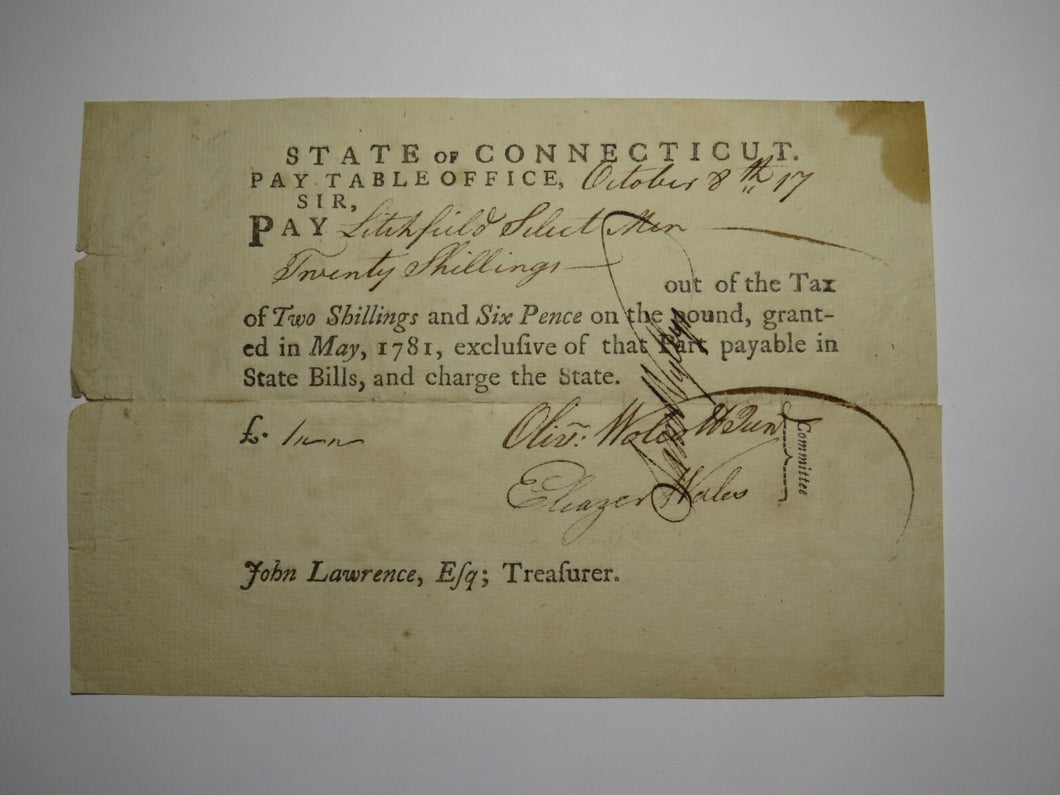 STATE OF CONNECTICUT.
PAY TABLE OFFICE, October 8th 17
SIR,
PAY Litchfield Select Men
Twenty Shillings
out of the Tax
of Two Shillings and Six Pence on the pound, grant-
ed in May, 1781, excluſive of that Part payable in
State Bills, and charge the State.
£.
Olivr: Wolcott Jun
Committee
Eleazer Wales
John Lawrence, Eſq; Treaſurer.